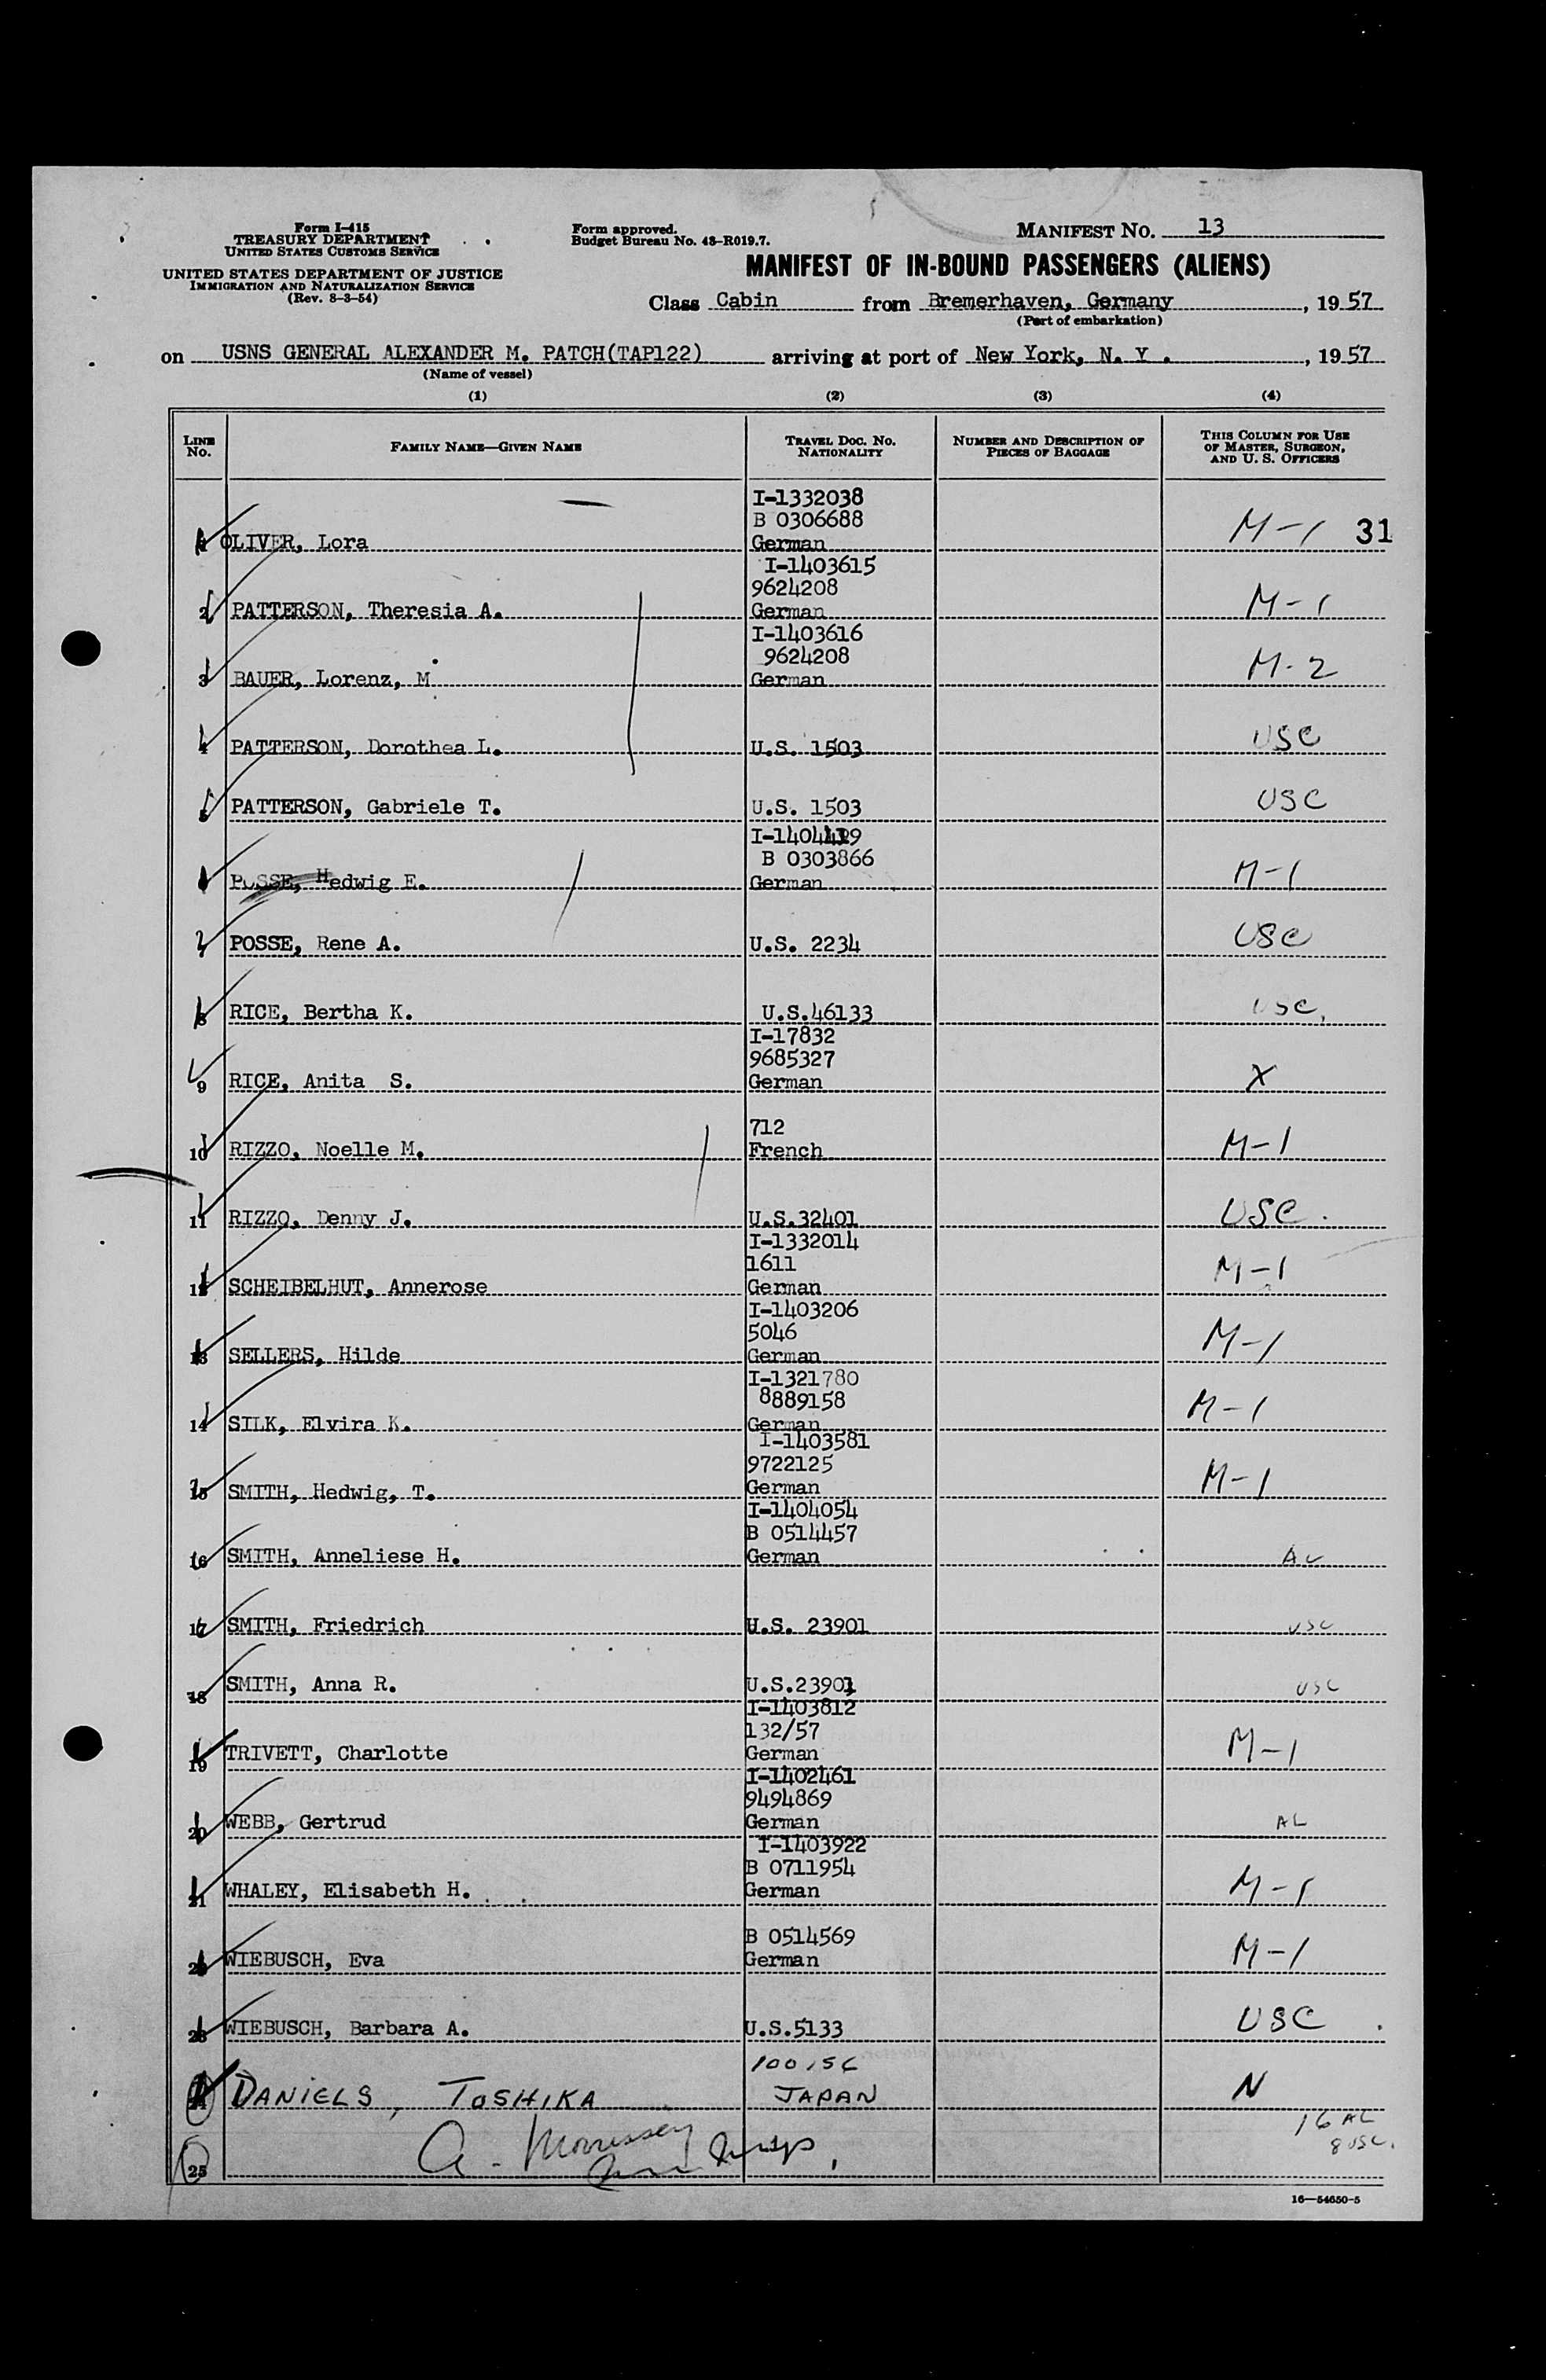 Form I-415
TREASURY DEPARTMENT
UNITED STATES CUSTOMS SERVICE
UNITED STATES DEPARTMENT OF JUSTICE
IMMIGRATION AND NATURALIZATION SERVICE
(Rev. 8-3-54)
Form approved.
Budget Bureau No. 43-R019.7.
MANIFEST NO. 13
MANIFEST OF IN-BOUND PASSENGERS (ALIENS)
Class Cabin from Bremerhaven, Germany, 1957
(Port of embarkation)
on USNS GENERAL ALEXANDER M. PATCH(TAP122) arriving at port of New York, N. Y ., 1957
(Name of vessel)
(1) (2) (3) (4)
LINE NO. FAMILY NAME—GIVEN NAME TRAVEL DOC. NO. NATIONALITY NUMBER AND DESCRIPTION OF PIECES OF BAGGAGE THIS COLUMN FOR USE OF MASTER, SURGEON, AND U. S. OFFICERS
I-1332038
B 0306688
1 OLIVER, Lora German M-1 31
I-1403615
9624208
2 PATTERSON, Theresia A. German M-1
I-1403616
9624208
3 BAUER, Lorenz, M German M-2
4 PATTERSON, Dorothea L. U.S. 1503 USC
5 PATTERSON, Gabriele T. U.S. 1503 USC
B 0303866
POSSE, Hedwig E. German M-1
7 POSSE, Rene A. U.S. 2234 USC
8 RICE, Bertha K. U.S.46133 USC.
I-17832
9685327
9 RICE, Anita S. German X
712
10 RIZZO, Noelle M. French M-1
11 RIZZO, Denny J. U.S.32401 USC.
I-1332014
1611
12 SCHEIBELHUT, Annerose German M-1
I-1403206
5046
13 SELLERS, Hilde German M-1
I-1321780
8889158
14 SILK, Elvira K. German M-1
I-1403581
9722125
15 SMITH, Hedwig, T. German M-1
I-1404054
B 0514457
16 SMITH, Anneliese H. German AL
17 SMITH, Friedrich U.S. 23901 USC
18 SMITH, Anna R. U.S.23901 USC
I-1403812
132/57
19 TRIVETT, Charlotte German M-1
I-1402461
9494869
20 WEBB, Gertrud German AL
I-1403922
B 0711954
21 WHALEY, Elisabeth H. German M-1
B 0514569
22 WIEBUSCH, Eva German M-1
23 WIEBUSCH, Barbara A. U.S.5133 USC
24 DANIELS, TOSHIKA JAPAN N
16 AL
8 USC.
A. Morrissey
25
16—54650-5